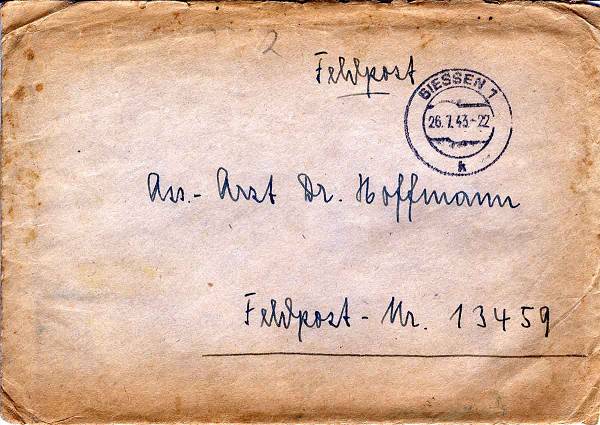 2
Feldpost
GIESSEN 1
26.7.43-22
k
Ass.-Arzt Dr. Hoffmann
Feldpost-Nr. 13459